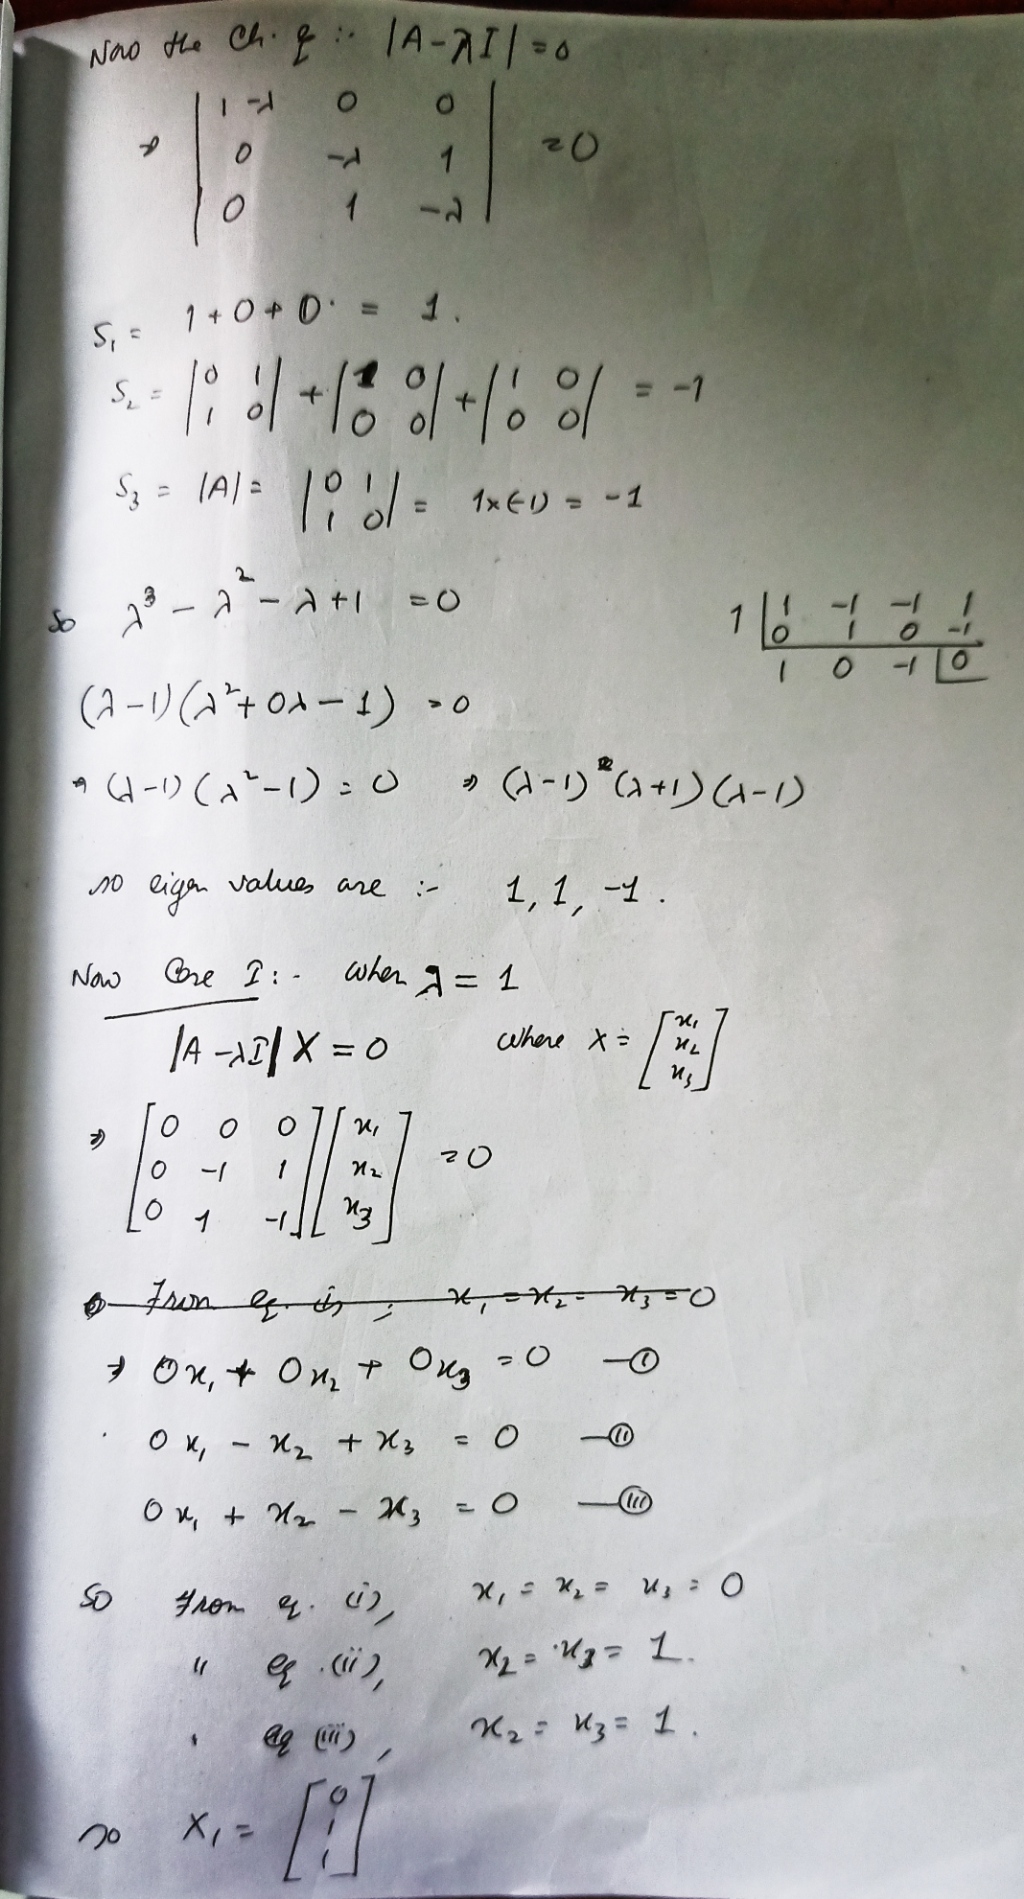 Now the Ch. eq :- |A-λI| = 0
⇒ | 1-λ 0 0 |
| 0 -λ 1 | = 0
| 0 1 -λ |
S₁ = 1+0+0 = 1.
S₂ = |0 1; 1 0| + |1 0; 0 0| + |1 0; 0 0| = -1
S₃ = |A| = |0 1; 1 0| = 1×(-1) = -1
So λ³ - λ² - λ + 1 = 0
1 | 1 -1 -1 1
0 1 0 -1
1 0 -1 | 0
(λ-1)(λ²+0λ-1) = 0
⇒ (λ-1)(λ²-1) = 0 ⇒ (λ-1)(λ+1)(λ-1)
so eigen values are :- 1, 1, -1.
Now Case I :- When λ = 1
|A-λI| X = 0 where X = [x₁; x₂; x₃]
⇒ [0 0 0; 0 -1 1; 0 1 -1] [x₁; x₂; x₃] = 0
From eq. (i), x₁ = x₂ = x₃ = 0
⇒ 0x₁ + 0x₂ + 0x₃ = 0 —(i)
0x₁ - x₂ + x₃ = 0 —(ii)
0x₁ + x₂ - x₃ = 0 —(iii)
So from eq. (i), x₁ = x₂ = x₃ = 0
" eq. (ii), x₂ = x₃ = 1.
" eq (iii), x₂ = x₃ = 1.
so X₁ = [0; 1; 1]